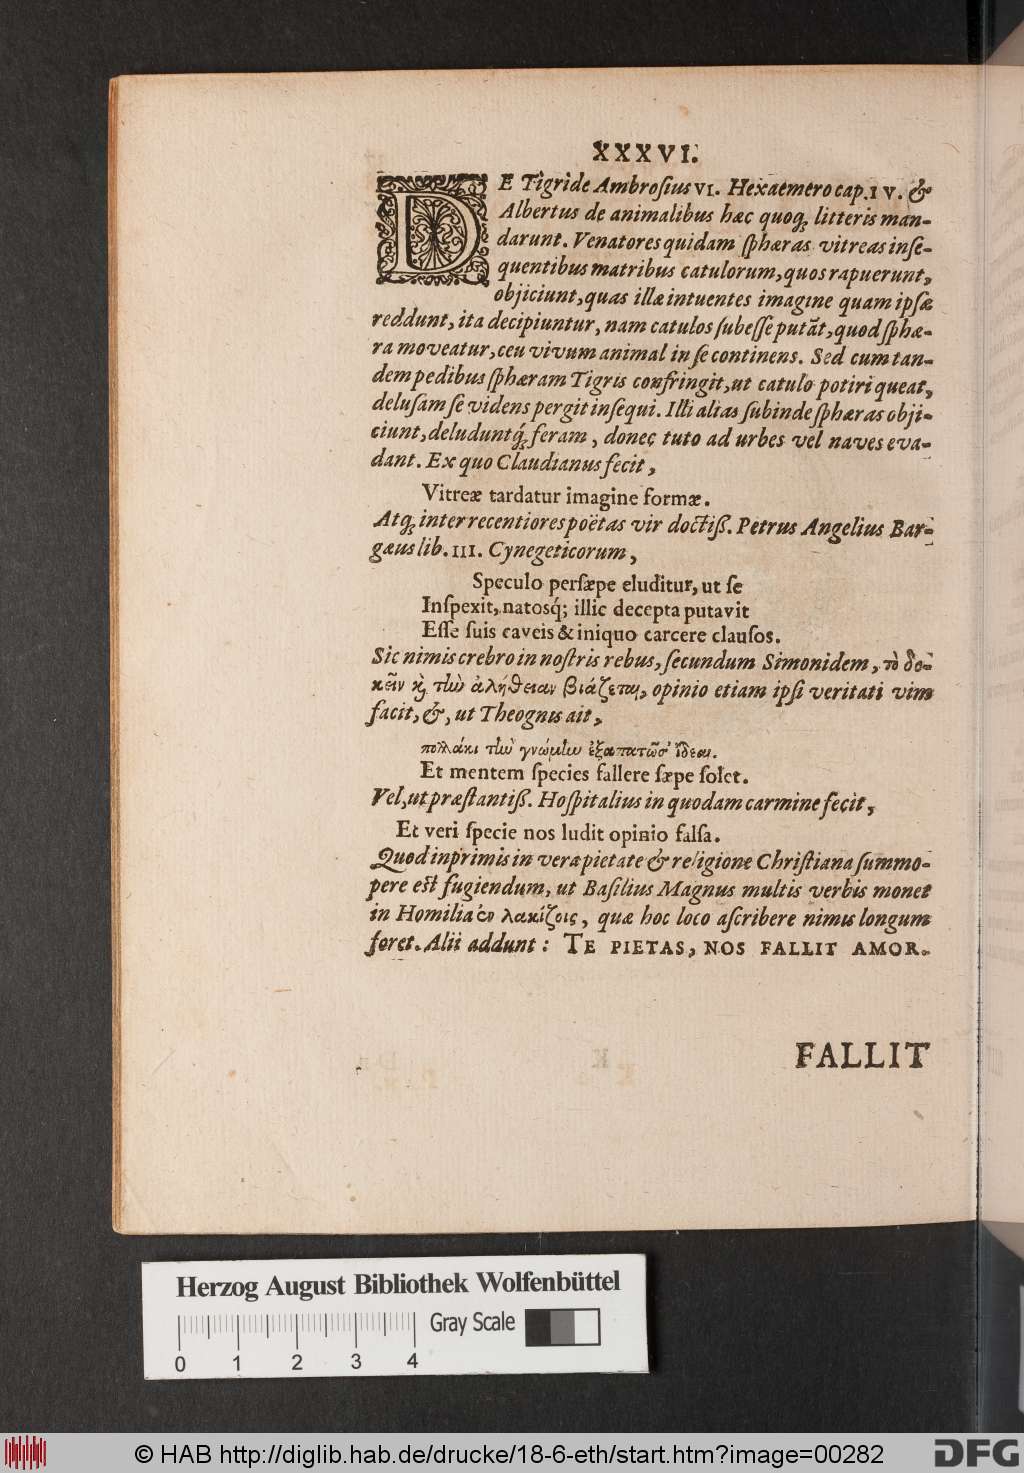 XXXVI.
DE Tigride Ambrosius VI. Hexaemero cap. IV. &
Albertus de animalibus hæc quoq; litteris man-
darunt. Venatores quidam sphæras vitreas inse-
quentibus matribus catulorum, quos rapuerunt,
objiciunt, quas illæ intuentes imagine quam ipsæ
reddunt, ita decipiuntur, nam catulos subesse putāt, quod sphæ-
ra moveatur, ceu vivum animal in se continens. Sed cum tan-
dem pedibus sphæram Tigris confringit, ut catulo potiri queat,
delusam se videns pergit insequi. Illi alias subinde sphæras obji-
ciunt, deluduntq́; feram, donec tuto ad urbes vel naves eva-
dant. Ex quo Claudianus fecit,
Vitreæ tardatur imagine formæ.
Atq; inter recentiores poëtas vir doctiß. Petrus Angelius Bar-
gæus lib. III. Cynegeticorum,
Speculo persæpe eluditur, ut se
Inspexit, natosq́; illic decepta putavit
Esse suis caveis & iniquo carcere clausos.
Sic nimis crebro in nostris rebus, secundum Simonidem, τὸ δο-
κεῖν κὶ τὴν ἀλήθειαν βιάζεται, opinio etiam ipsi veritati vim
facit, &, ut Theognis ait,
πολλάκι τὴν γνώμην ἐξαπατῶσ' ἴδεαι.
Et mentem species fallere sæpe solet.
Vel, ut præstantiß. Hospitalius in quodam carmine fecit,
Et veri specie nos ludit opinio falsa.
Quod inprimis in vera pietate & religione Christiana summo-
pere est fugiendum, ut Basilius Magnus multis verbis monet
in Homilia ἐν λακίζοις, quæ hoc loco ascribere nimis longum
foret. Alii addunt: TE PIETAS, NOS FALLIT AMOR.
FALLIT
Herzog August Bibliothek Wolfenbüttel
Gray Scale
0 1 2 3 4
© HAB http://diglib.hab.de/drucke/18-6-eth/start.htm?image=00282
DFG